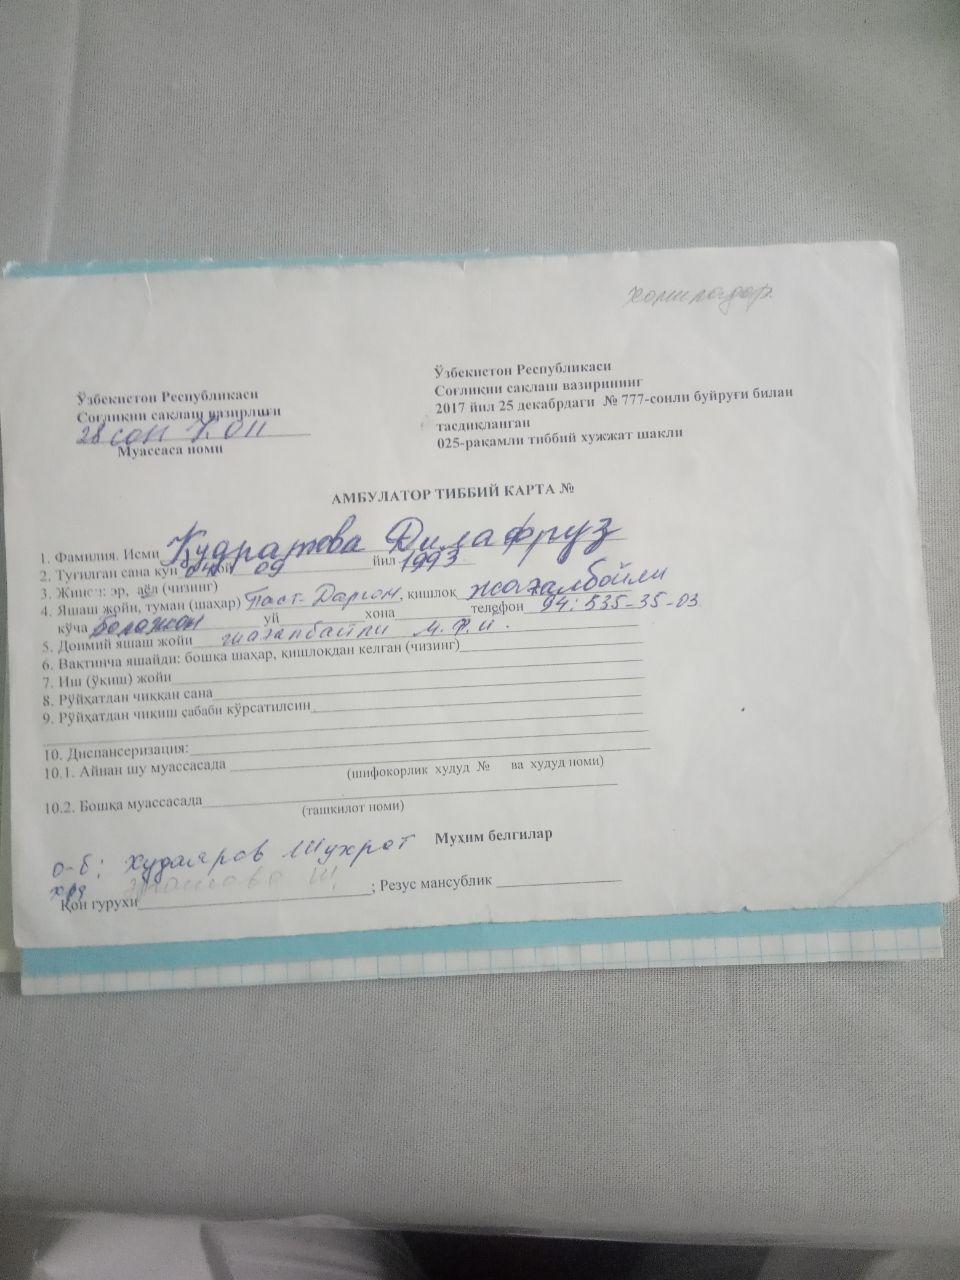 хомиладор
Ўзбекистон Республикаси
Соғлиқни сақлаш вазирлиги
28 сон КОП
Муассаса номи
Ўзбекистон Республикаси
Соғлиқни сақлаш вазирининг
2017 йил 25 декабрдаги № 777-сонли буйруғи билан
тасдиқланган
025-рақамли тиббий хужжат шакли
АМБУЛАТОР ТИББИЙ КАРТА №
1. Фамилия. Исми Қудратова Дилафруз
2. Туғилган сана кун ой 09 йил 1993
3. Жинси: эр, аёл (чизинг)
4. Яшаш жойи, туман (шаҳар) Паст-Дарғом, кишлоқ
кўча уй хона телефон 94: 535-35-03
5. Доимий яшаш жойи М.Ф.Й.
6. Вақтинча яшайди: бошқа шаҳар, қишлоқдан келган (чизинг)
7. Иш (ўқиш) жойи
8. Рўйҳатдан чиққан сана
9. Рўйҳатдан чиқиш сабаби кўрсатилсин
10. Диспансеризация:
10.1. Айнан шу муассасада
(шифокорлик худуд № ва худуд номи)
10.2. Бошқа муассасада
(ташкилот номи)
Муҳим белгилар
о-б: Худаяров Шухрат
Қон гурухи ; Резус мансублик